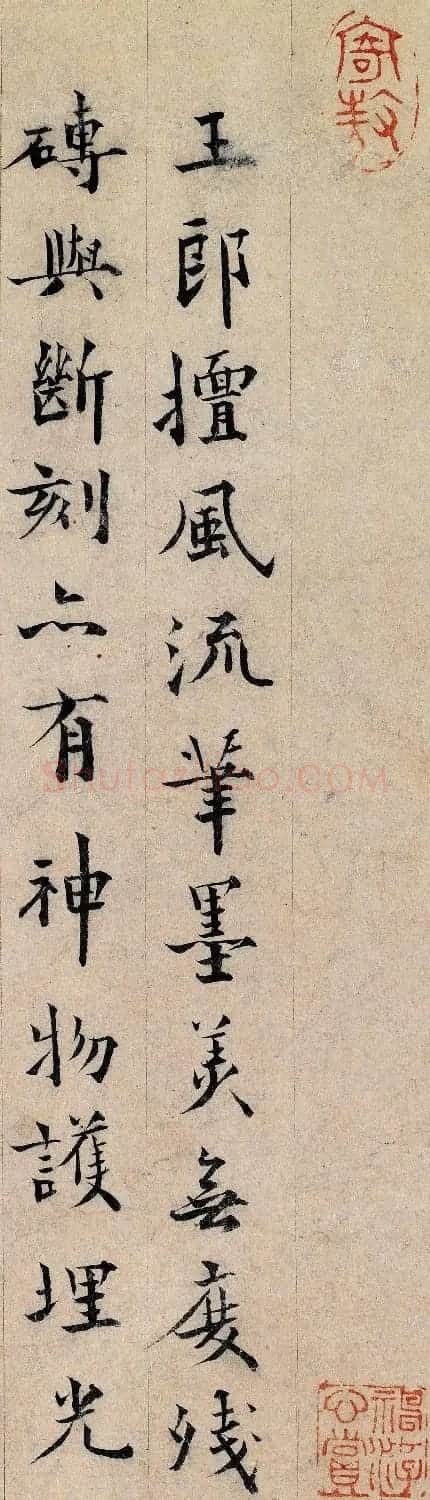 王郎擅風流筆墨美無度残
磚與斷刻亦有神物護埋光